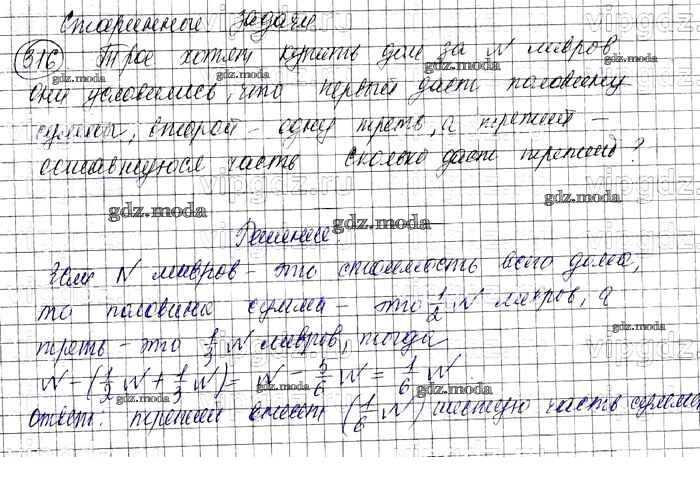 Старинные задачи
316 Трое хотят купить дом за N ливров
они условились, что первый даст половину
суммы, второй - одну треть, а третий -
оставшуюся часть Сколько даст третий?
gdz.moda gdz.moda gdz.moda gdz.moda
vipgdz.ru
gdz.moda gdz.moda gdz.moda
Решение:
Если N ливров - это стоимость всего дома,
то половина суммы - это 1/2 N ливров, а
треть - это 1/3 N ливров, тогда
N - (1/2 N + 1/3 N) = N - 5/6 N = 1/6 N
Ответ: третий внесет (1/6 N) шестую часть суммы